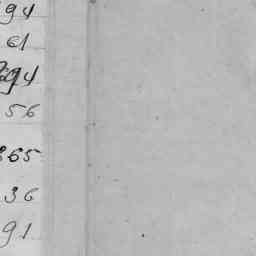 94
61
56
365
36
91